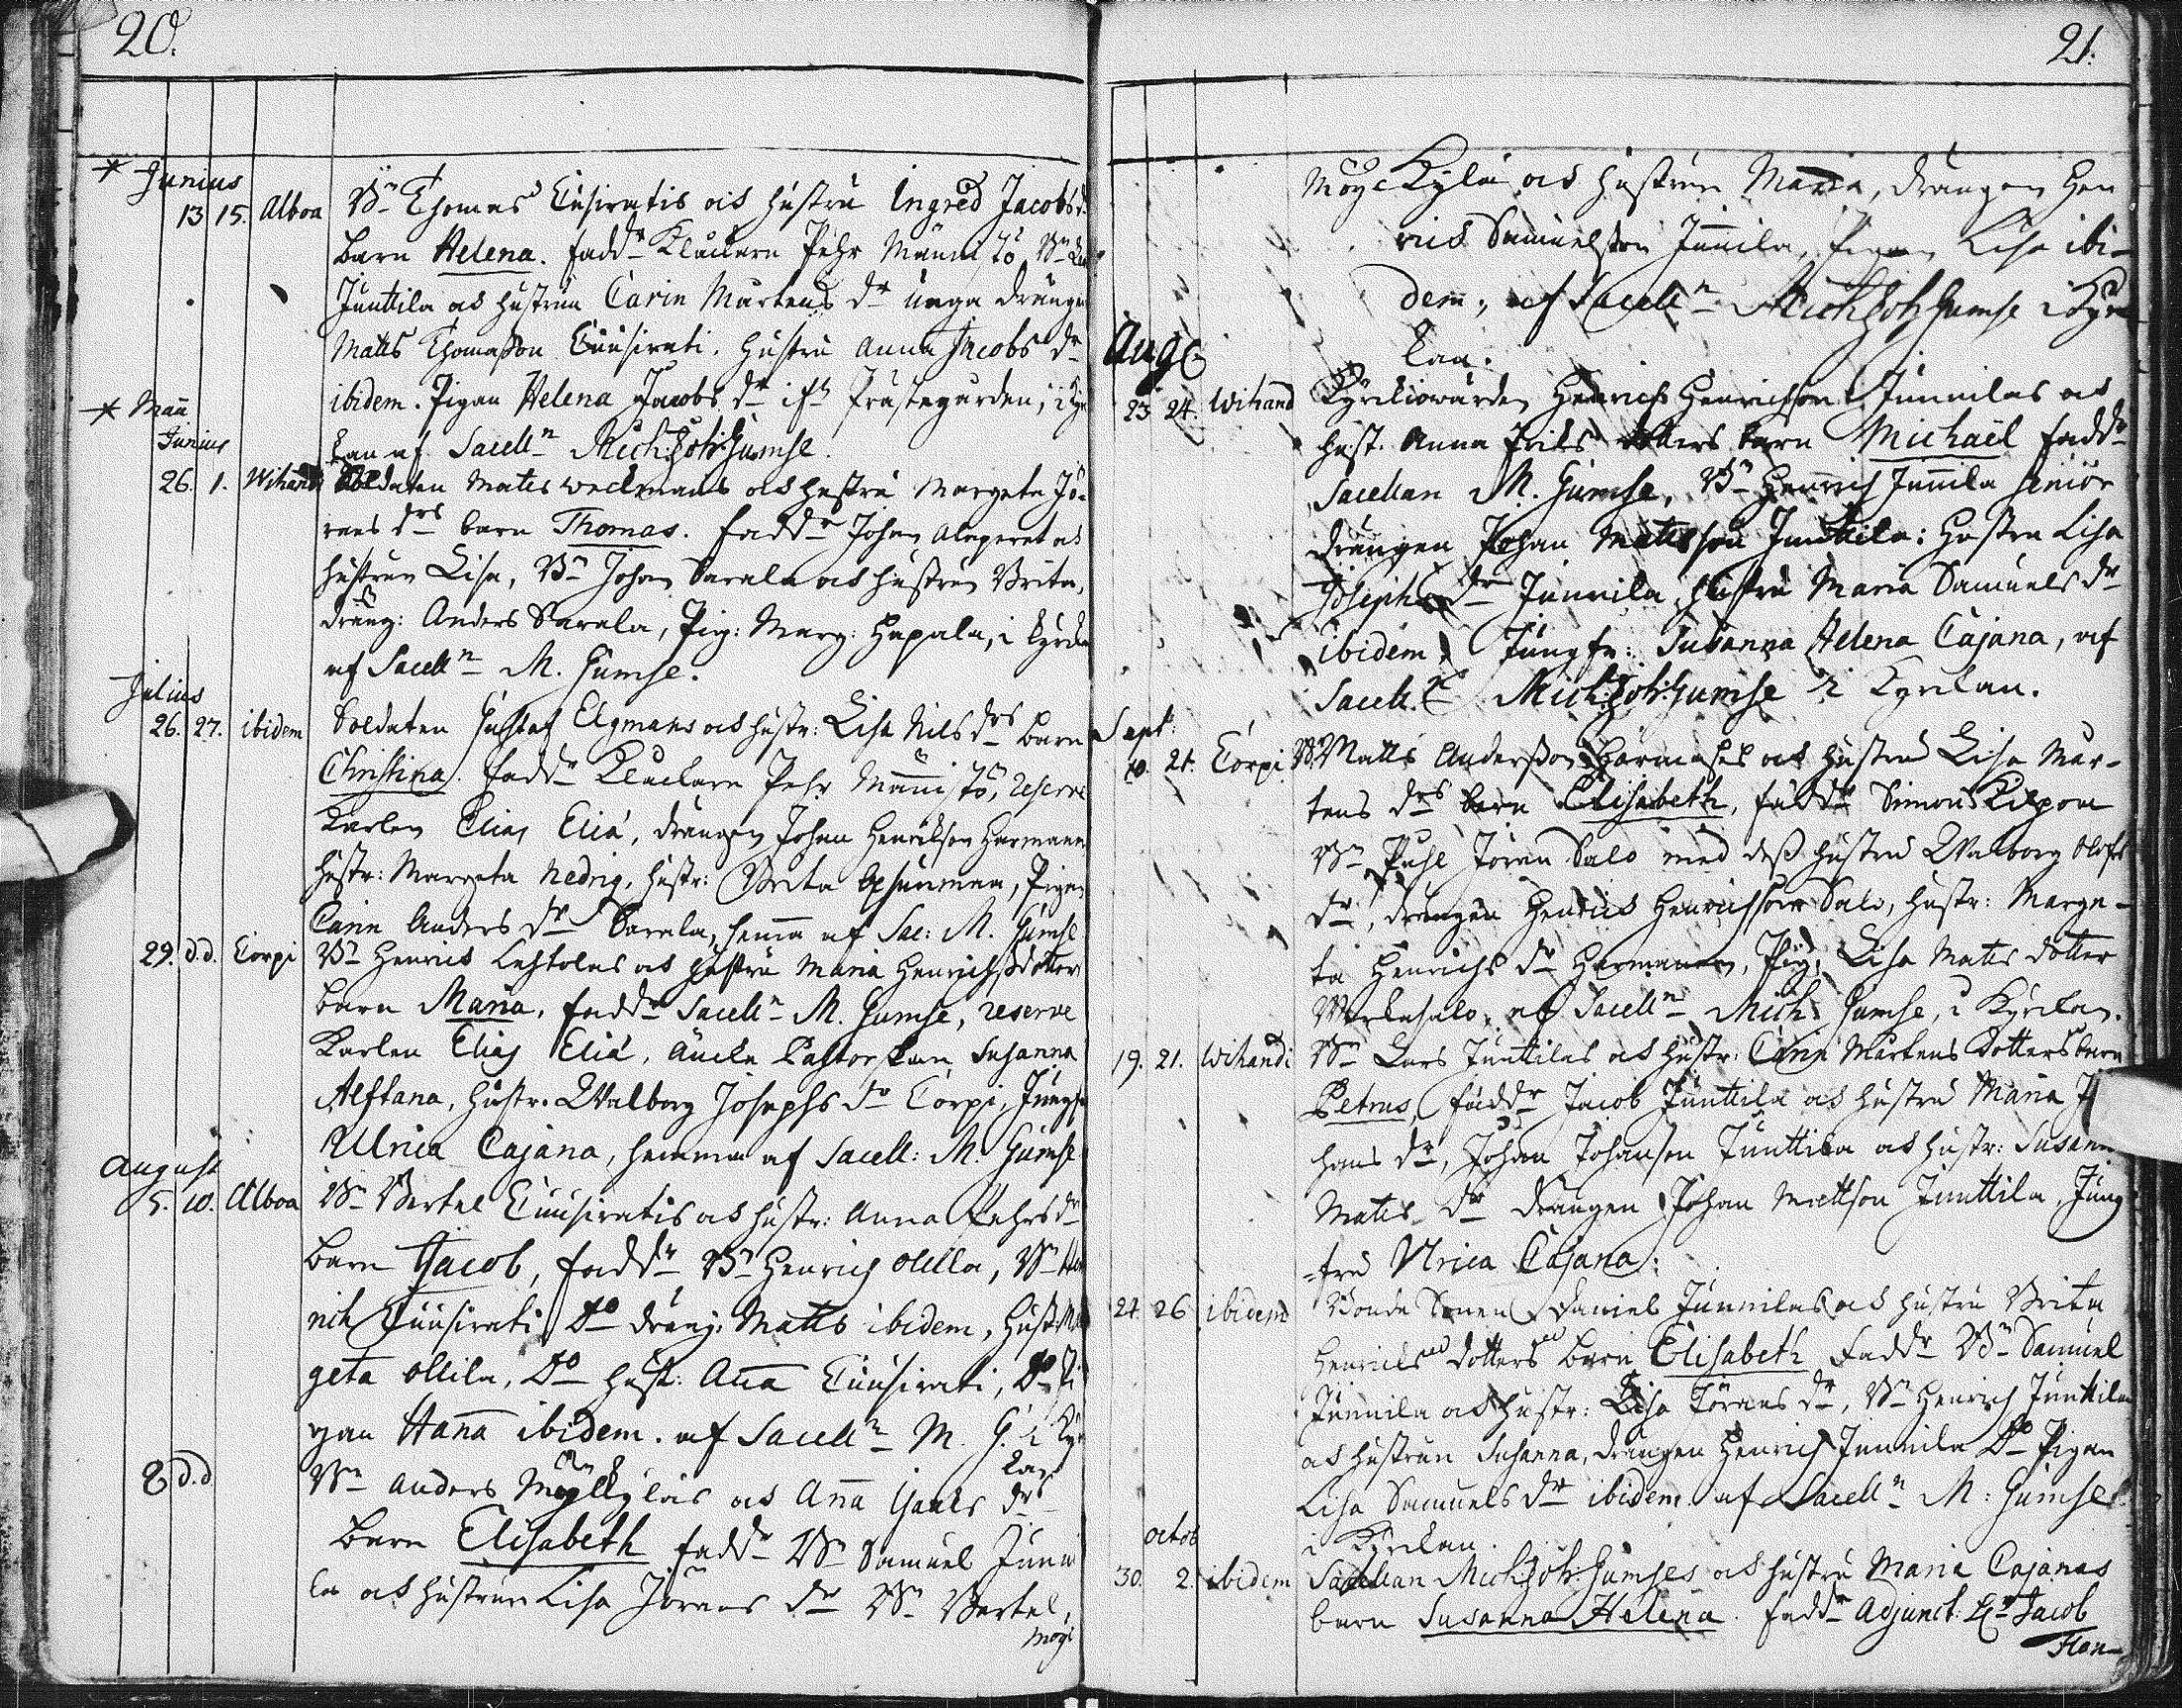 20.
* Junius
13 15. Alboa Bn Thomas Tuusiratis ock hustru Ingred Jacobs d.
barn Helena. fadd. Kluckarn Pehr Männistö Bn
Junttila ock hustrun Carin Mårtens dr unga drängen
Matts Thomasson Tuusirati. Hustru Anna Jacobs dr
ibidem. Pigan Helena Jacobs dr ifn Prästegården, i Kyr
kan af Sacelln Mich: Joh: Gumse.
* Maii
Junius
26. 1. Wihandi Soldaten Matts Weckmans ock hustru Margeta Jö-
rans drs barn Thomas. fadd. Johan Alaperet ock
hustrun Lisa, Bn Johan Sarala ock hustrun Brita,
dräng: Anders Sarala, Pig: Marg: Hapala, i Kyrkan
af Sacelln M. Gumse.
Julius
26. 27. ibidem Soldaten Gustaf Elgmans ock hustr: Lisa Nils drs barn
Christina. fadd. Kluckarn Pehr Männistö, reserve
Karlen Elias Eliä, drängen Johan Henrikson Hermanen
hustr: Margeta Nedrig, hustr: Brita, Pigan
Carin Anders dr Sarala, hemma af Sac: M. Gumse
29. d.d. Torpi Bn Henrick Lehtolas ock hustru Maria Henrichsdotters
barn Maria. fadd. Sacelln M. Gumse, reserve
Karlen Elias Eliä, Änke Pastorskan Susanna
Alftana, hustr. Walborg Josephs dr Torpi, Jungfr
Ulrica Cajana, hemma af Sacell: M. Gumse
August
5. 10. Alboa Bn Bertel Tuusiratis ock hustr: Anna Pehrs dr
barn Jacob, fadd. Bn Henrich Ollila, Bn Hen
rich Tuusirati, Do dräng: Matts ibidem, Hust: Mar
geta Ollila, Do hust: Anna Tuusirati, Do Pi
gan Hanna ibidem. af Sacelln M. G. i Kyr
kan
8 d.d Bn Anders Möykkyläs ock Anna drs
barn Elisabeth fadd. Bn Samuel Junni
la ock hustrun Lisa Jörans dr Bn Bertel
Möyc
21.
Möyckylä ock hustrun Maria, drängen Hen
rick Samuelsson Junnila, Pigan Lisa ibi-
dem, af Sacelln Mich Joh Gumse i Kyr
kan.
Aug
23 24. Wihand Kyrkiowärden Henrich Henrichson Junnilas ock
hust. Anna Eriks dotters barn Michaël fadd.
Sacellan M. Gumse, Bn Henrich Junnila senior
drängen Johan Matsson Junttila: Hustru Lisa
Josephs dr Junnila, hustru Maria Samuels dr
ibidem, Jungfr: Susanna Helena Cajana, af
Sacell. Mich: Joh: Gumse i Kyrckan.
Sept:
10. 21. Torpi Bn Matts Anderson ock hustru Lisa Mår-
tens drs barn Elisabeth, fadd. Simon Kilpona
Bn Puhl Jöran Salo med dess hustru Walborg Olofs
dr, drängen Henrick Henrichsson Salo, hustr: Marge-
ta Henrichs dr Hermanen, Pig. Lisa Matts dotter
af Sacelln Mich Gumse, i Kyrckan.
19. 21. Wihandi Bn Lars Junttilas ock hustr: Carin Mårtens dotters barn
Petrus, fadd. Jacob Junttila ock hustru Maria J
hans dr, Johan Johanson Junttila ock hustr: Susanna
Matts dr drängen Johan Mattson Junttila, Jung
=fru Ulrica Cajana.
24. 26 ibidem Bonde Sonen Daniel Junnilas ock hustru Brita
Henricks dotters barn Elisabeth fadd. Bn Samuel
Junnila ock hustr: Lisa Jörans dr, Bn Henrich Junttila
ock hustrun Susanna, drängen Henrich Junnila Do Pigan
Lisa Samuels dr ibidem af Sacelln M: Gumse
i Kyrckan.
Octob
30. 2. ibidem Sacellan Mich Joh: Gumses ock hustru Maria Cajanas
barn Susanna Helena. fadd. Adjunct. Hr Jacob
Flan-